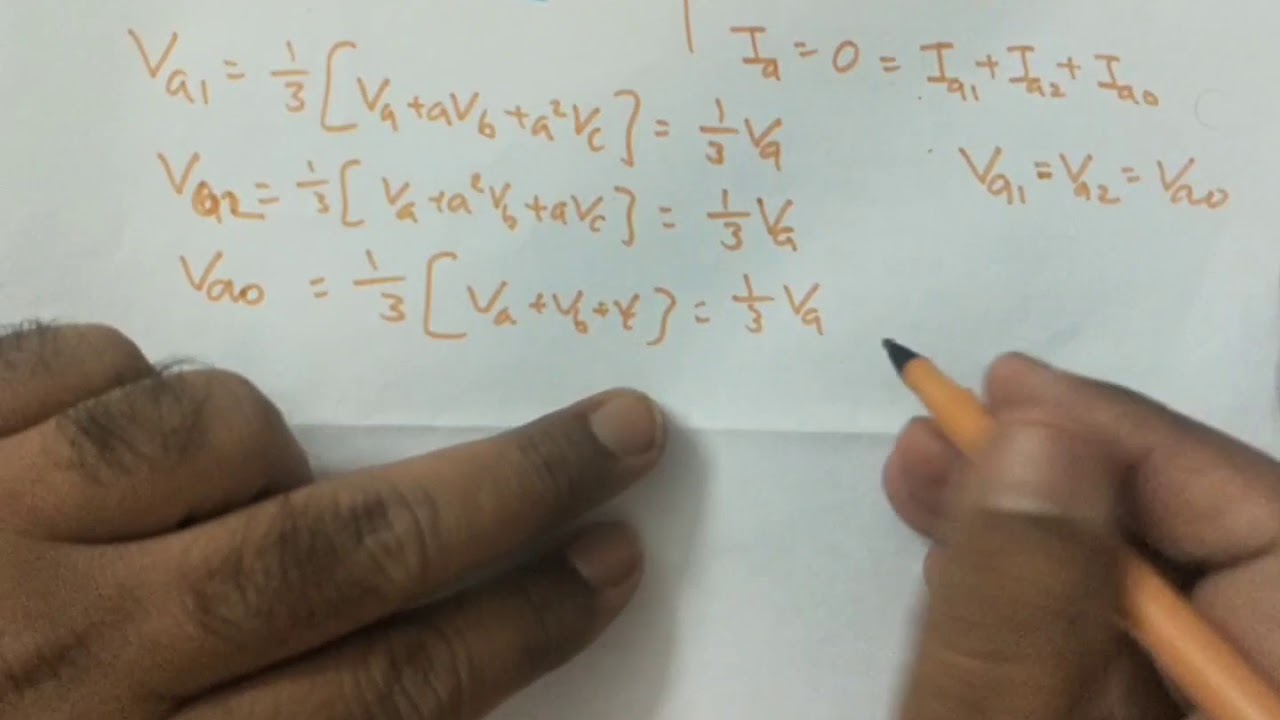 Va1 = 1/3 [Va + aVb + a²Vc] = 1/3 Va
Va2 = 1/3 [Va + a²Vb + aVc] = 1/3 Va
Va0 = 1/3 [Va + Vb + Vc] = 1/3 Va
Ia = 0 = Ia1 + Ia2 + Ia0
Va1 = Va2 = Va0